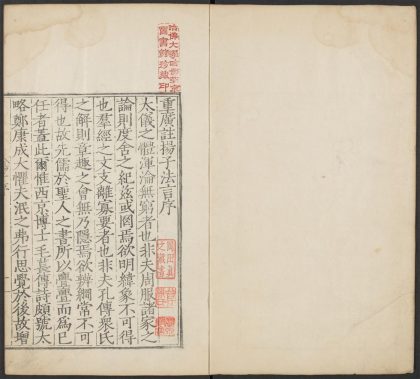 哈佛大學哈佛燕京
圖書館珍藏印
重廣註揚子法言序
太儀之體渾淪無窮者也非夫周服諸家之
論則度舍之紀茲或罔焉欲明緯象不可得
也羣經之文支離寡要者也非夫孔傳衆氏
之解則章趣之會無乃隱焉欲辨綱常不可
得也故先儒於聖人之書所以亹亹而爲已
任者蓋此爾惟西京博士毛萇傳詩頗號太
略鄭康成大懼天泯之弗行思覺於後故增